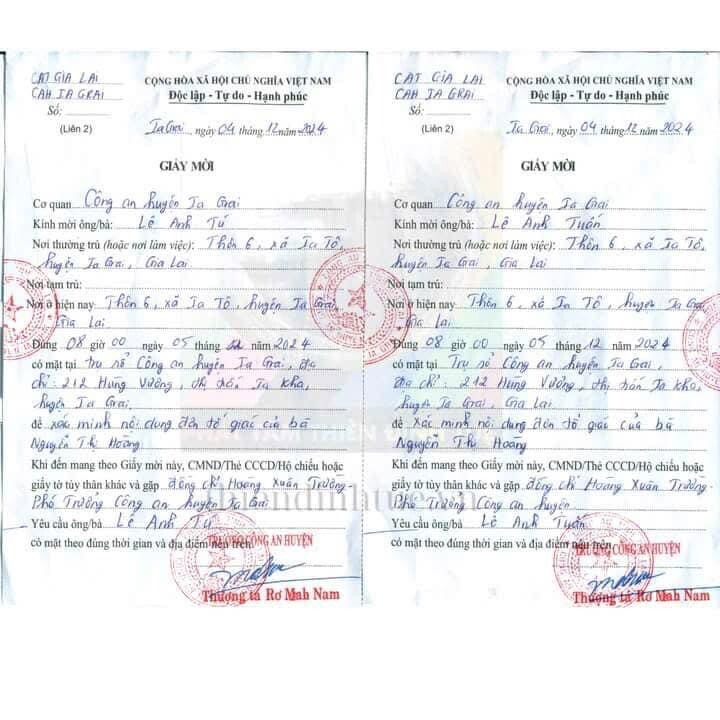 CAT GIA LAI
CAH IA GRAI
Số:
(Liên 2)
CỘNG HÒA XÃ HỘI CHỦ NGHĨA VIỆT NAM
Độc lập - Tự do - Hạnh phúc
Ia Grai, ngày 04 tháng 12 năm 2024
GIẤY MỜI
Cơ quan Công an huyện Ia Grai
Kính mời ông/bà: Lê Anh Tú
Nơi thường trú (hoặc nơi làm việc): Thôn 6, xã Ia Tô,
huyện Ia Grai, Gia Lai
Nơi tạm trú:
Nơi ở hiện nay Thôn 6, xã Ia Tô, huyện Ia Grai,
Gia Lai
Đúng 08 giờ 00 ngày 05 tháng 12 năm 2024
có mặt tại trụ sở Công an huyện Ia Grai, địa
chỉ: 212 Hùng Vương, thị trấn Ia Kha,
huyện Ia Grai.
để xác minh nội dung đơn tố giác của bà
Nguyễn Thị Hoàng
Khi đến mang theo Giấy mời này, CMND/Thẻ CCCD/Hộ chiếu hoặc
giấy tờ tùy thân khác và gặp đồng chí Hoàng Xuân Trường-
Phó Trưởng Công an huyện Ia Grai
Yêu cầu ông/bà Lê Anh Tú
có mặt theo đúng thời gian và địa điểm nêu trên.
TRƯỞNG CÔNG AN HUYỆN
Thượng tá Rơ Mah Nam
CAT GIA LAI
CAH IA GRAI
Số:
(Liên 2)
CỘNG HÒA XÃ HỘI CHỦ NGHĨA VIỆT NAM
Độc lập - Tự do - Hạnh phúc
Ia Grai, ngày 04 tháng 12 năm 2024
GIẤY MỜI
Cơ quan Công an huyện Ia Grai
Kính mời ông/bà: Lê Anh Tuấn
Nơi thường trú (hoặc nơi làm việc): Thôn 6, xã Ia Tô,
huyện Ia Grai, Gia Lai
Nơi tạm trú:
Nơi ở hiện nay Thôn 6, xã Ia Tô, huyện Ia Grai
Gia Lai
Đúng 08 giờ 00 ngày 05 tháng 12 năm 2024
có mặt tại Trụ sở Công an huyện Ia Grai,
địa chỉ: 212 Hùng Vương, thị trấn Ia Kha,
huyện Ia Grai, Gia Lai
để xác minh nội dung đơn tố giác của bà
Nguyễn Thị Hoàng
Khi đến mang theo Giấy mời này, CMND/Thẻ CCCD/Hộ chiếu hoặc
giấy tờ tùy thân khác và gặp đồng chí Hoàng Xuân Trường-
Phó Trưởng Công an huyện
Yêu cầu ông/bà Lê Anh Tuấn
có mặt theo đúng thời gian và địa điểm nêu trên.
TRƯỞNG CÔNG AN HUYỆN
Thượng tá Rơ Mah Nam